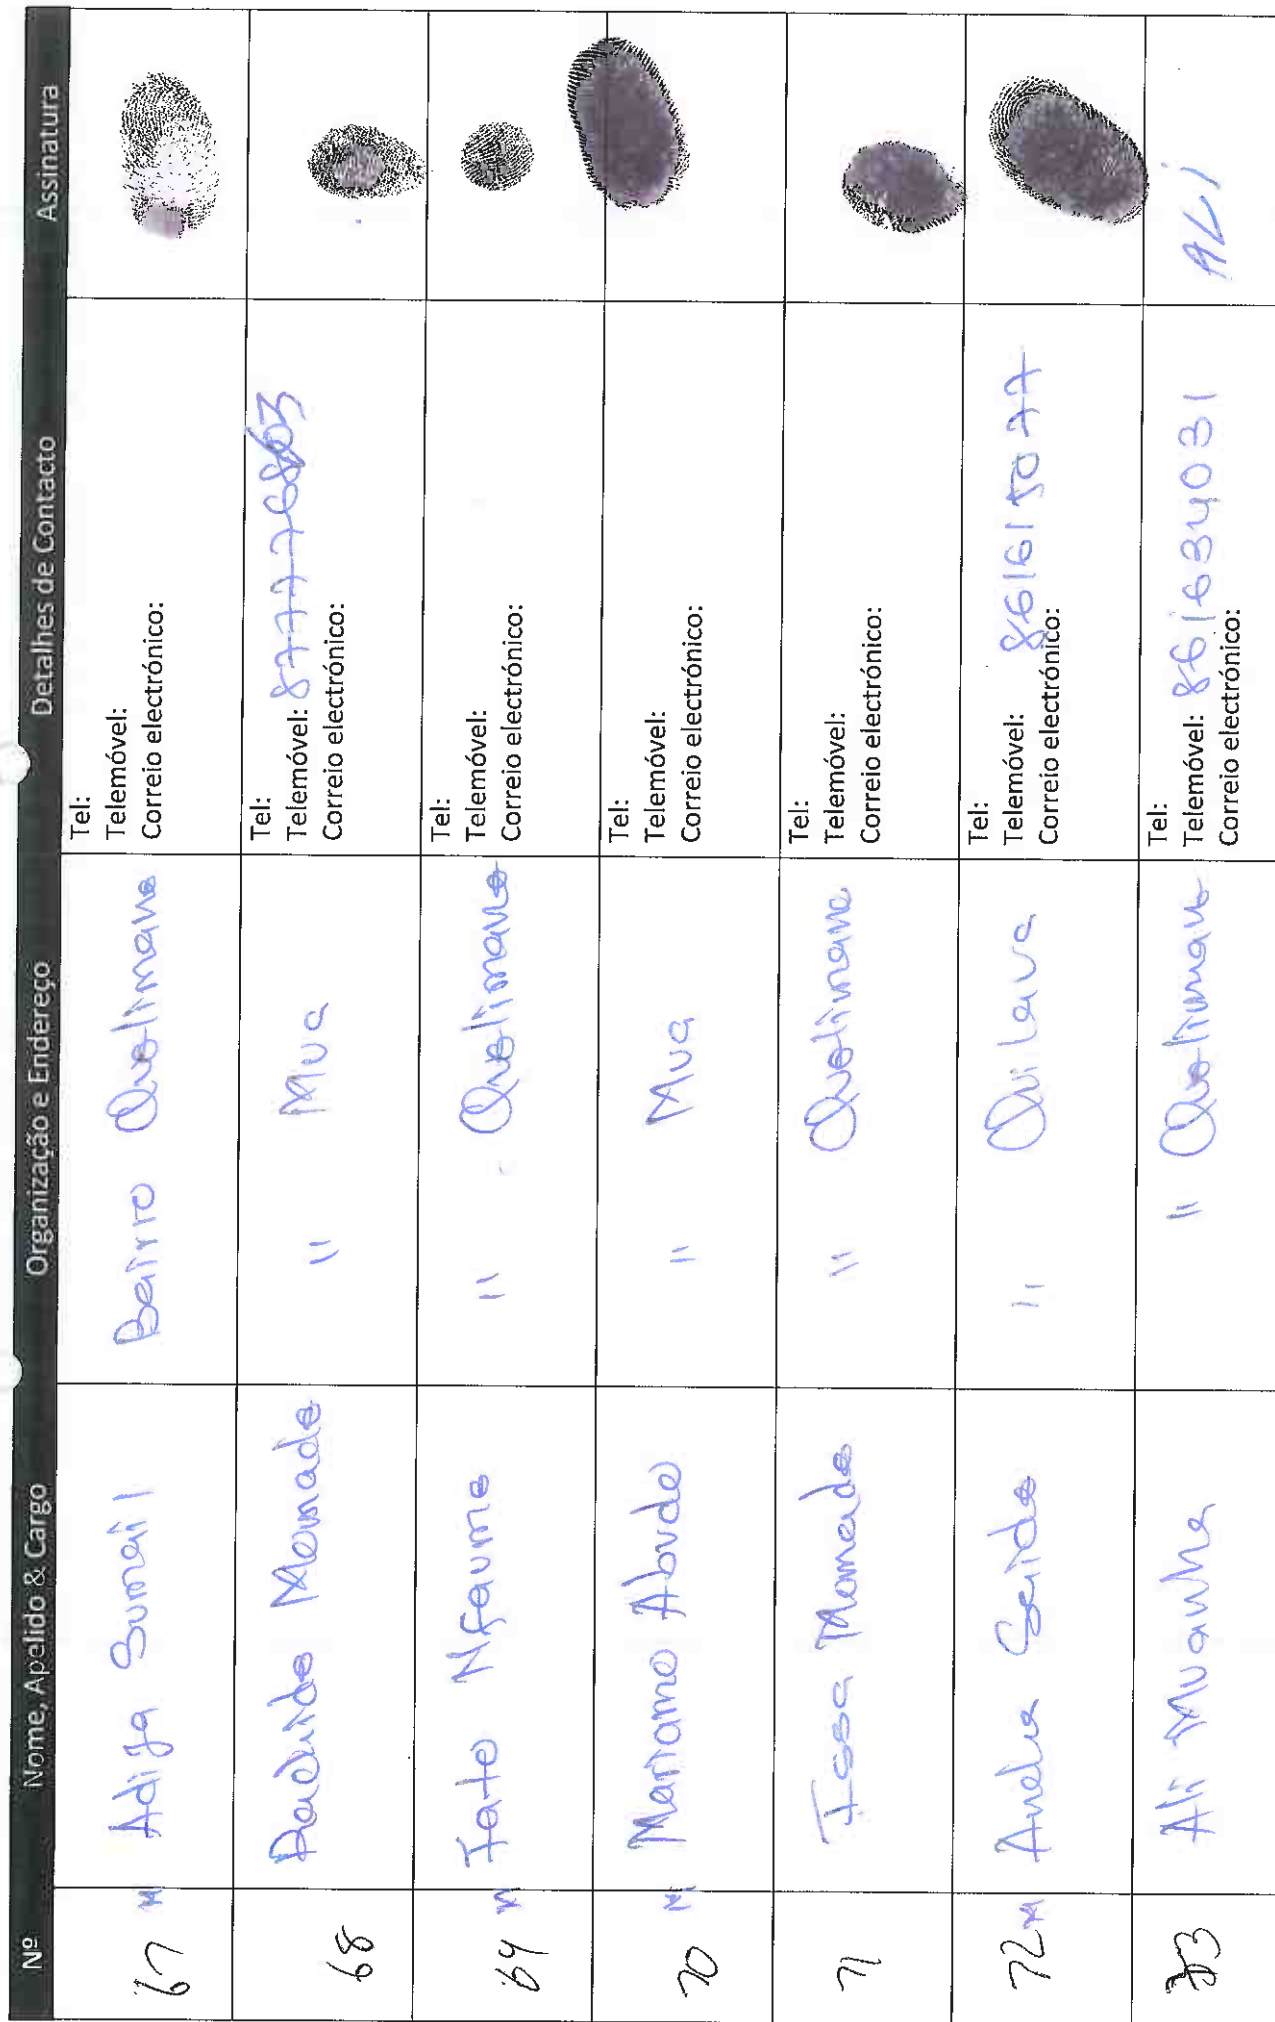 Nº Nome, Apelido & Cargo Organização e Endereço Detalhes de Contacto Assinatura
67 M Adija Sumail Bairro Quelimane
Tel:
Telemóvel:
Correio electrónico:
68 Mamade " Mua
Tel:
Telemóvel: 877776863
Correio electrónico:
69 M Fato Nfaume " Quelimane
Tel:
Telemóvel:
Correio electrónico:
70 M Mariamo Abude " Mua
Tel:
Telemóvel:
Correio electrónico:
71 Issa Mamade " Quelimane
Tel:
Telemóvel:
Correio electrónico:
72 M Saide " Quilaua
Tel:
Telemóvel: 861615077
Correio electrónico:
73 Ali Muanha " Quelimane
Tel:
Telemóvel: 861634031
Correio electrónico:
ALI